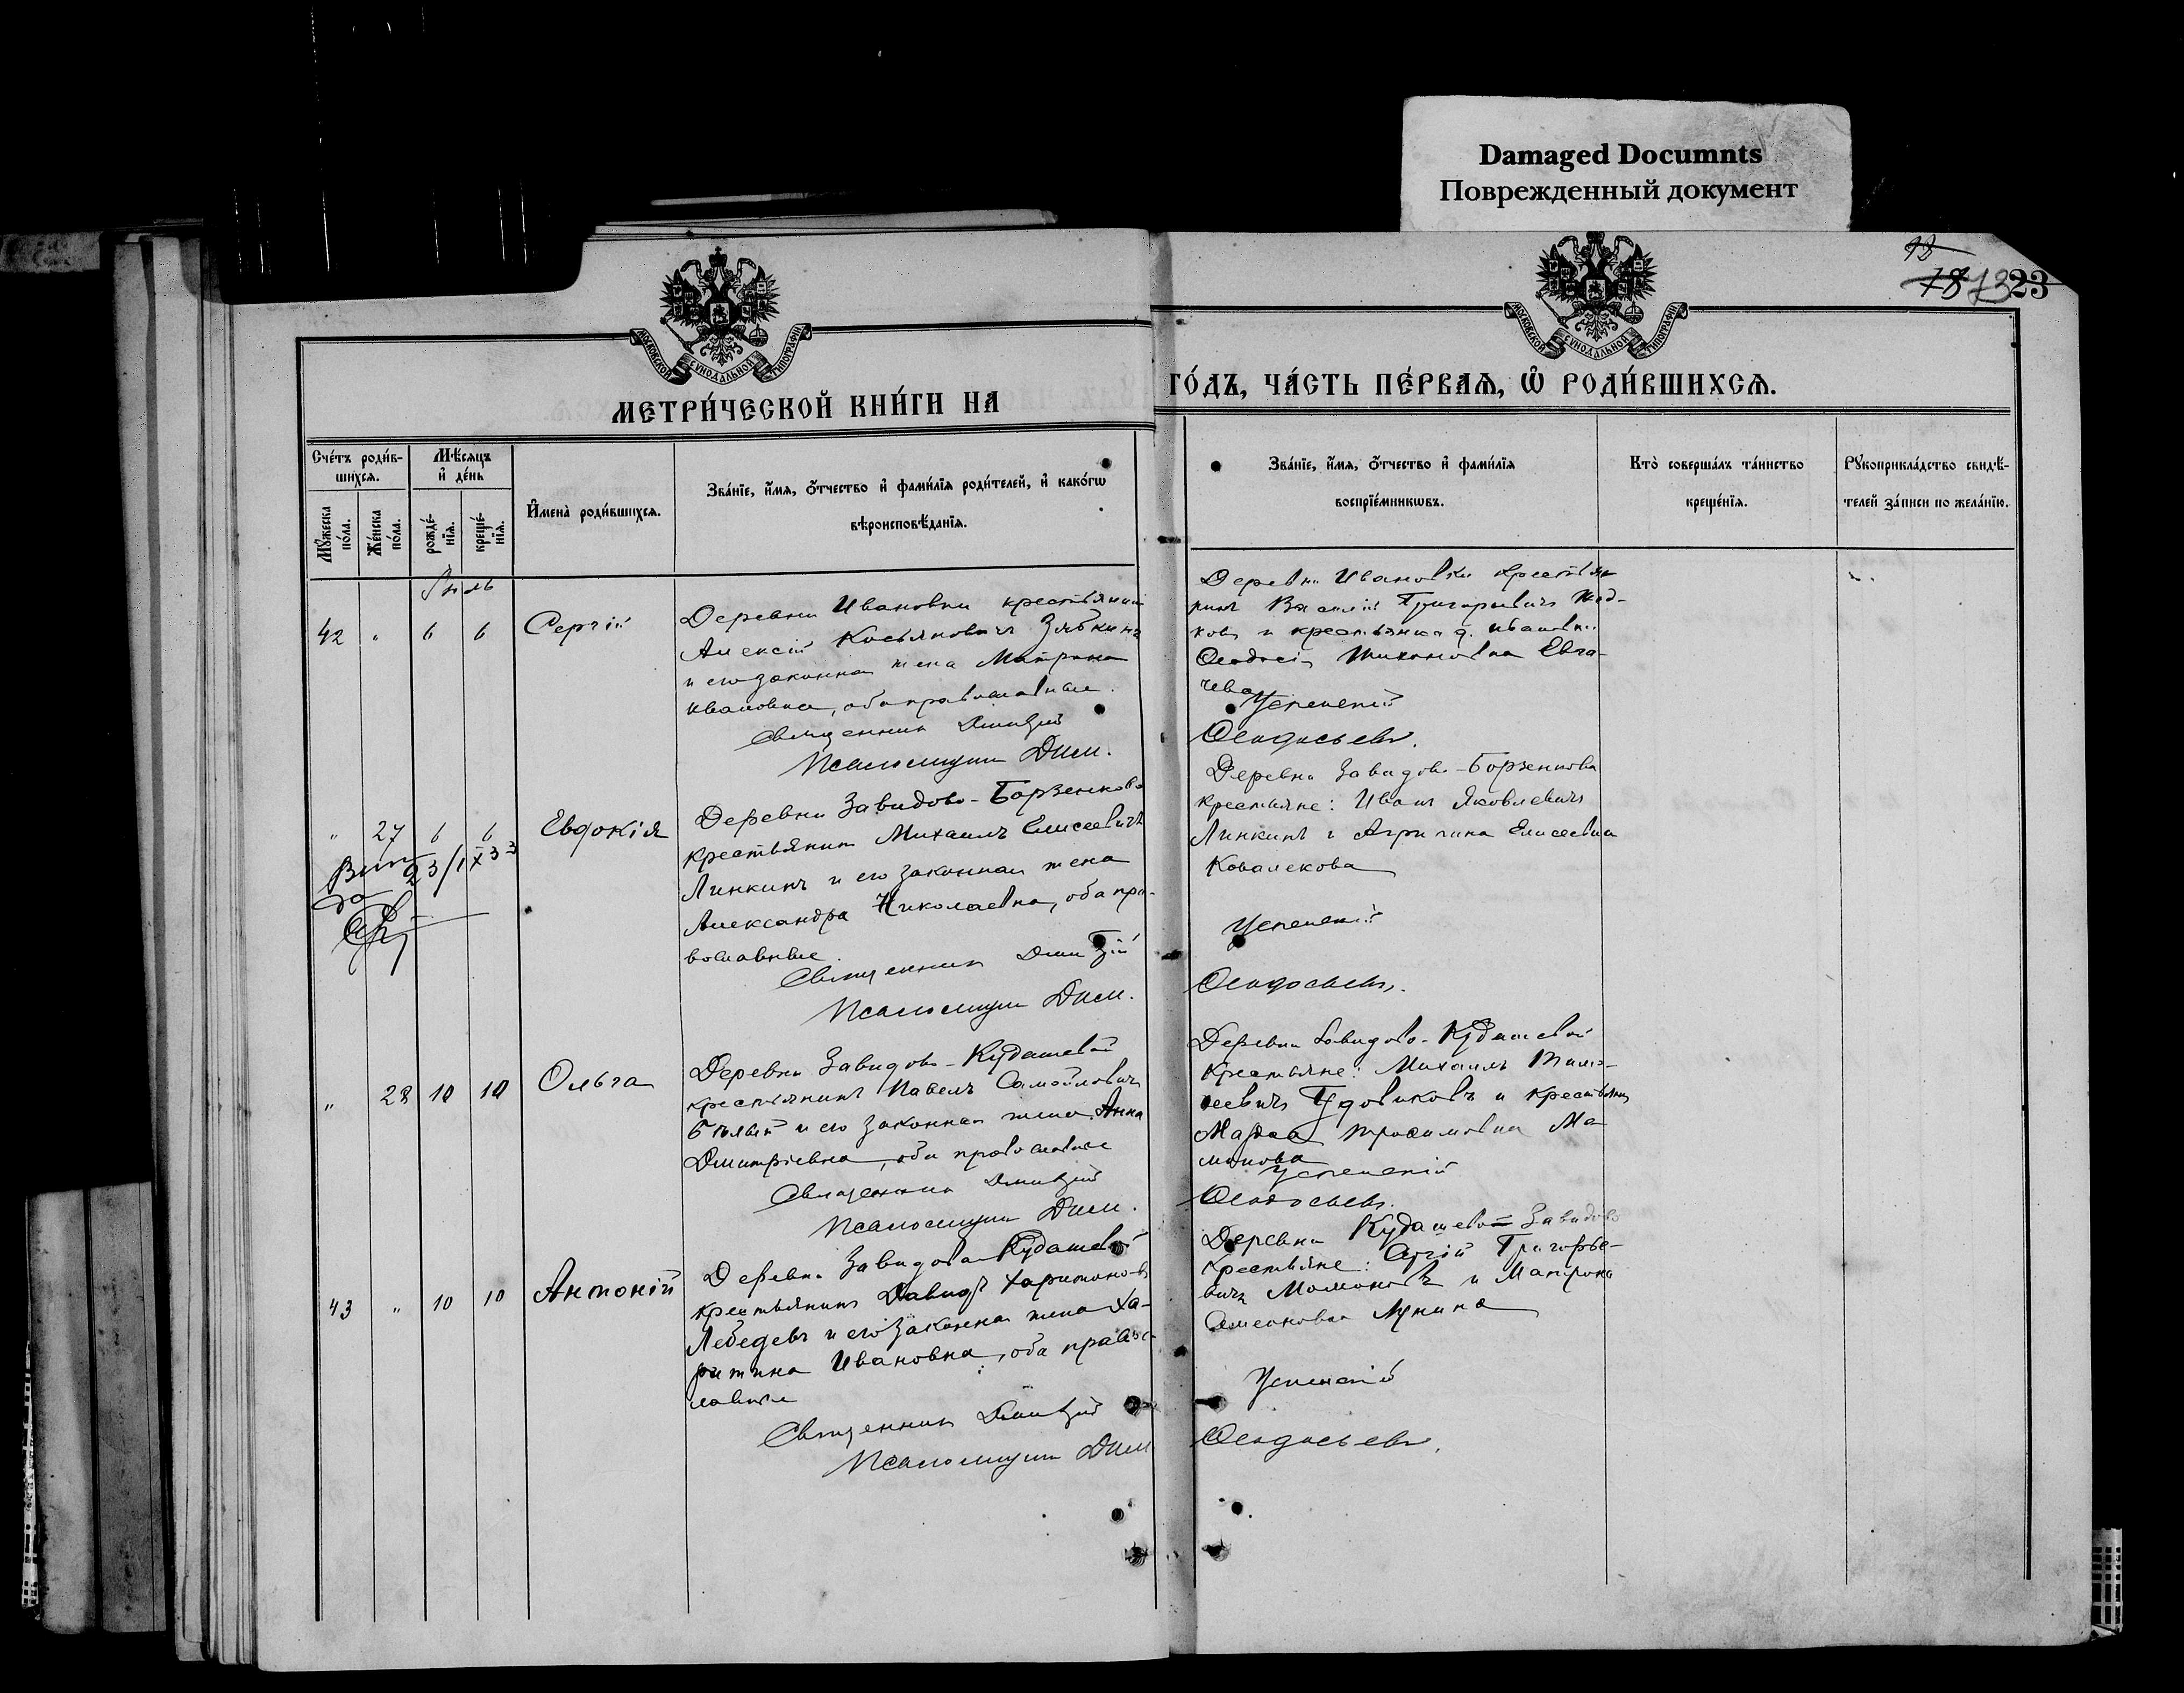 Damaged Documnts
Поврежденный документ
18
18 13 23
МОСКОВСКОЙ СУНОДАЛЬНОЙ ТИПОГРАФІИ
МОСКОВСКОЙ СУНОДАЛЬНОЙ ТИПОГРАФІИ
МЕТРИ́ЧЕСКОЙ КНИ́ГИ НА
ГО́ДЪ, ЧА́СТЬ ПЕ́РВАѦ, Ѡ҆ РОДИ́ВШИХСѦ.
Сче́тъ роди́в-
шихсѧ.
Мꙋ́жеска
по́ла.
Же́нска
по́ла.
Мѣ́сѧцъ
и҆ де́нь
рожде́-
нїѧ.
креще́-
нїѧ.
И҆мена̀ роди́вшихсѧ.
Зва́нїе, и҆́мѧ, ѻ҆́тчество и҆ фами́лїѧ роди́телей, и҆ како́гѡ
вѣроисповѣ́данїѧ.
Зва́нїе, и҆́мѧ, ѻ҆́тчество и҆ фами́лїѧ
воспрїе́мникѡвъ.
Кто̀ соверша́лъ та́инство
креще́нїѧ.
Рꙋкоприкла́дство свидѣ́-
телей за́писи по жела́нїю.
42 " 6 6 Сергій
Деревни Ивановки крестьянин
Алексій Касьяновичъ Зябкинъ
и его законная жена Матрона
Ивановна, оба православные.
Священникъ Димитрій
Псаломщикъ Дим.
Деревни Ивановки крестья
нинъ Василій Григорьевичъ
ковъ и крестьянка д. Ивановки
Ѳеодосія Тихоновна Евга-
чева
Успенскій
Ѳеодосьевъ.
" 27 6 6 Евдокія
Деревни Завидово-Борзенково
крестьянинъ Михаилъ Елисеевичъ
Линкинъ и его законная жена
Александра Николаевна, оба пра-
вославные.
Священникъ Димитрій
Псаломщикъ Дим.
Деревни Завидово-Борзенкова
крестьяне: Иванъ Яковлевичъ
Линкинъ и Агрипина Елисеевна
Ковалекова
Успенскій
Ѳеодосьевъ.
23/IX 33
" 28 10 10 Ольга
Деревни Завидово-Кудашевой
крестьянинъ Павелъ Самойловичъ
и его законная жена Анна
Дмитріевна, оба православные
Священникъ Димитрій
Псаломщикъ Дим.
Деревни Завидово-Кудашевой
крестьяне: Михаилъ Тимо-
ѳеевичъ Удовиковъ и крестьянка
Марѳа Трофимовна Ма
монова
Успенскій
Ѳеодосьевъ.
43 " 10 10 Антоній
Деревни Завидова Кудашевой
крестьянинъ Давидъ Харитоновъ
Лебедевъ и его законная жена Ха-
ритина Ивановна, оба право-
славные
Священникъ Димитрій
Псаломщикъ Дим
Деревни Кудашево=Завидово
крестьяне: Сергій Григорье-
вичъ Мамоновъ и Матрона
Семеновна Лунина
Успенскій
Ѳеодосьевъ.